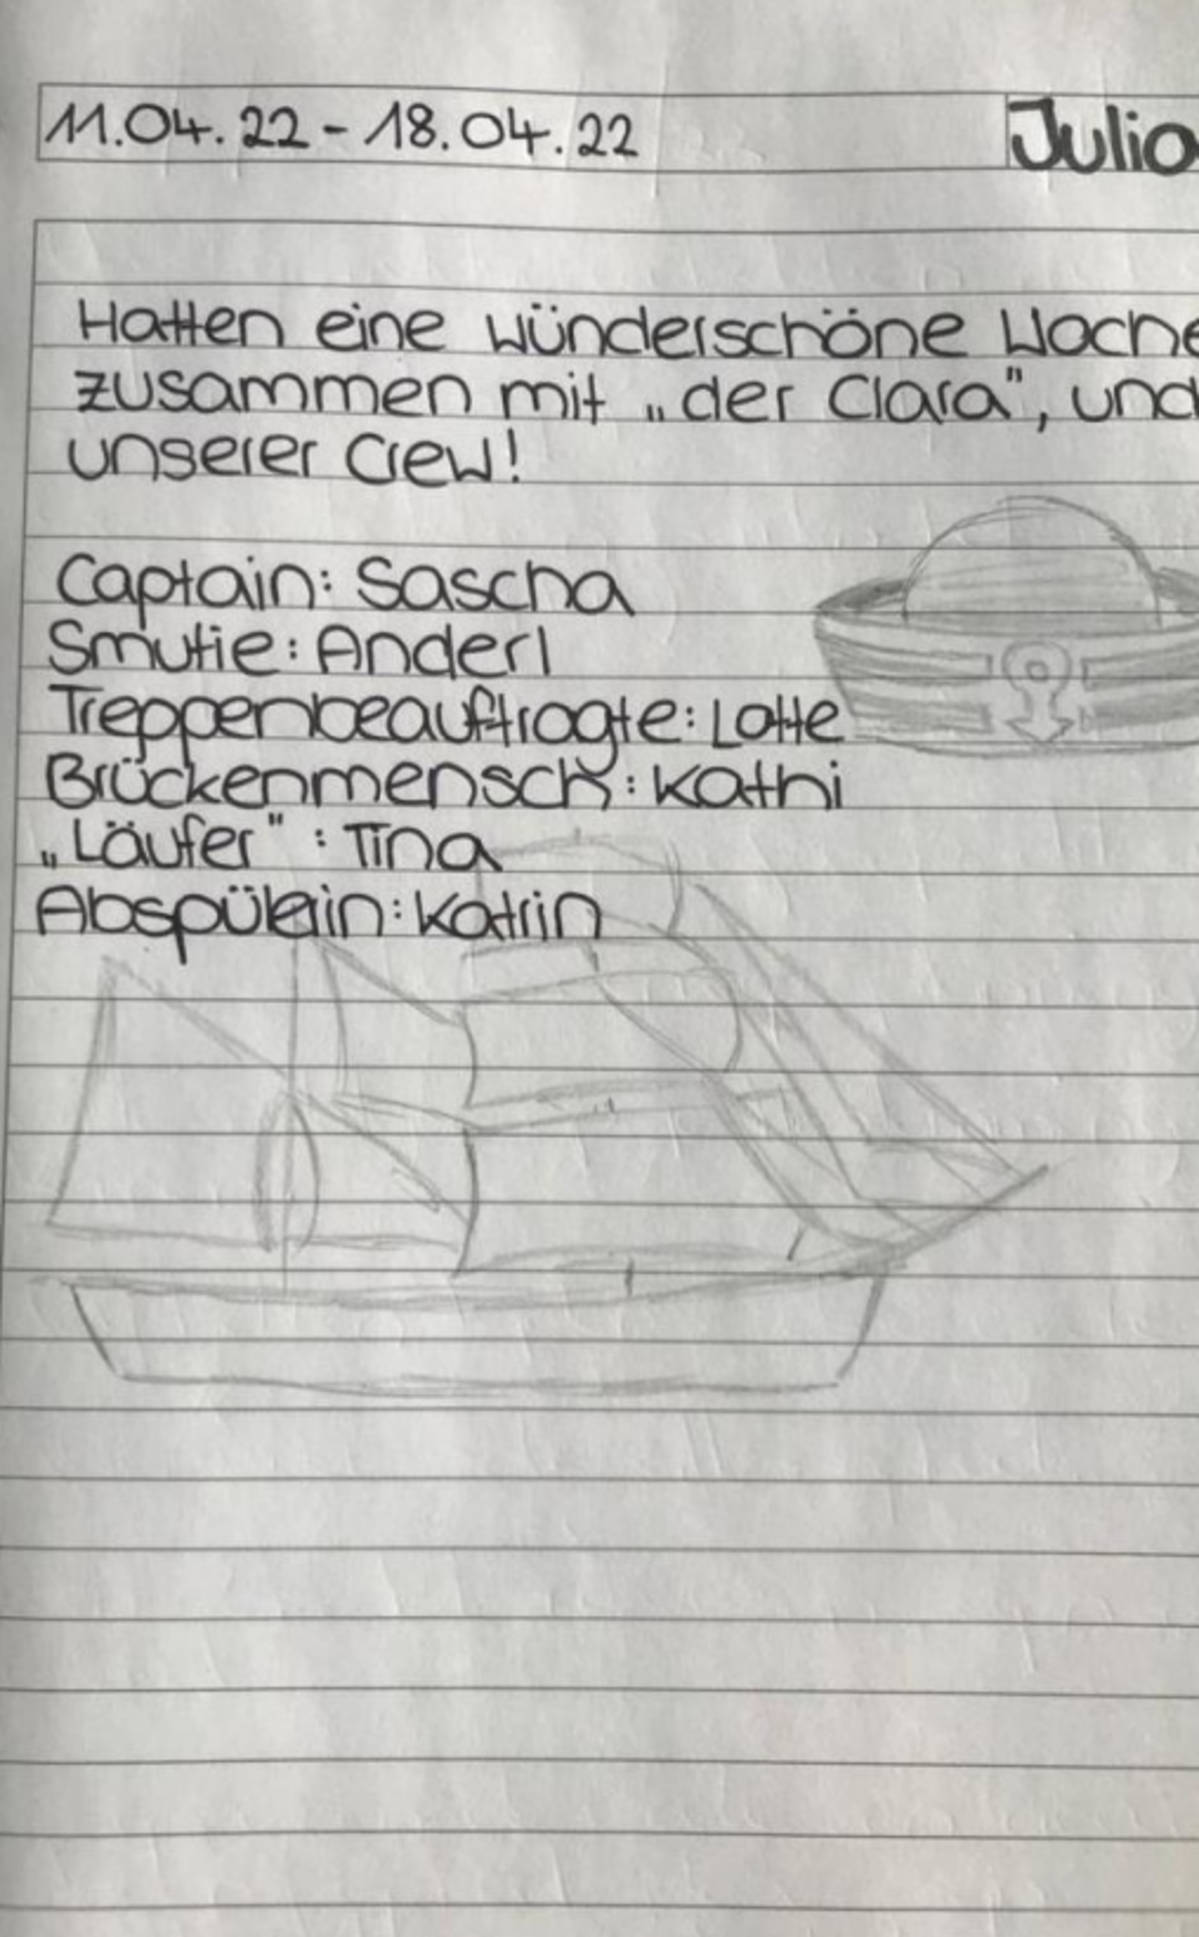 11.04.22 - 18.04.22
Julia
Hatten eine wünderschöne Woche
zusammen mit „der Clara", und
unserer Crew!
Captain: Sascha
Smutie: Anderl
Treppenbeauftragte: Lotte
Brückenmensch: Kathi
„Läufer" : Tina
Abspülerin: Katrin